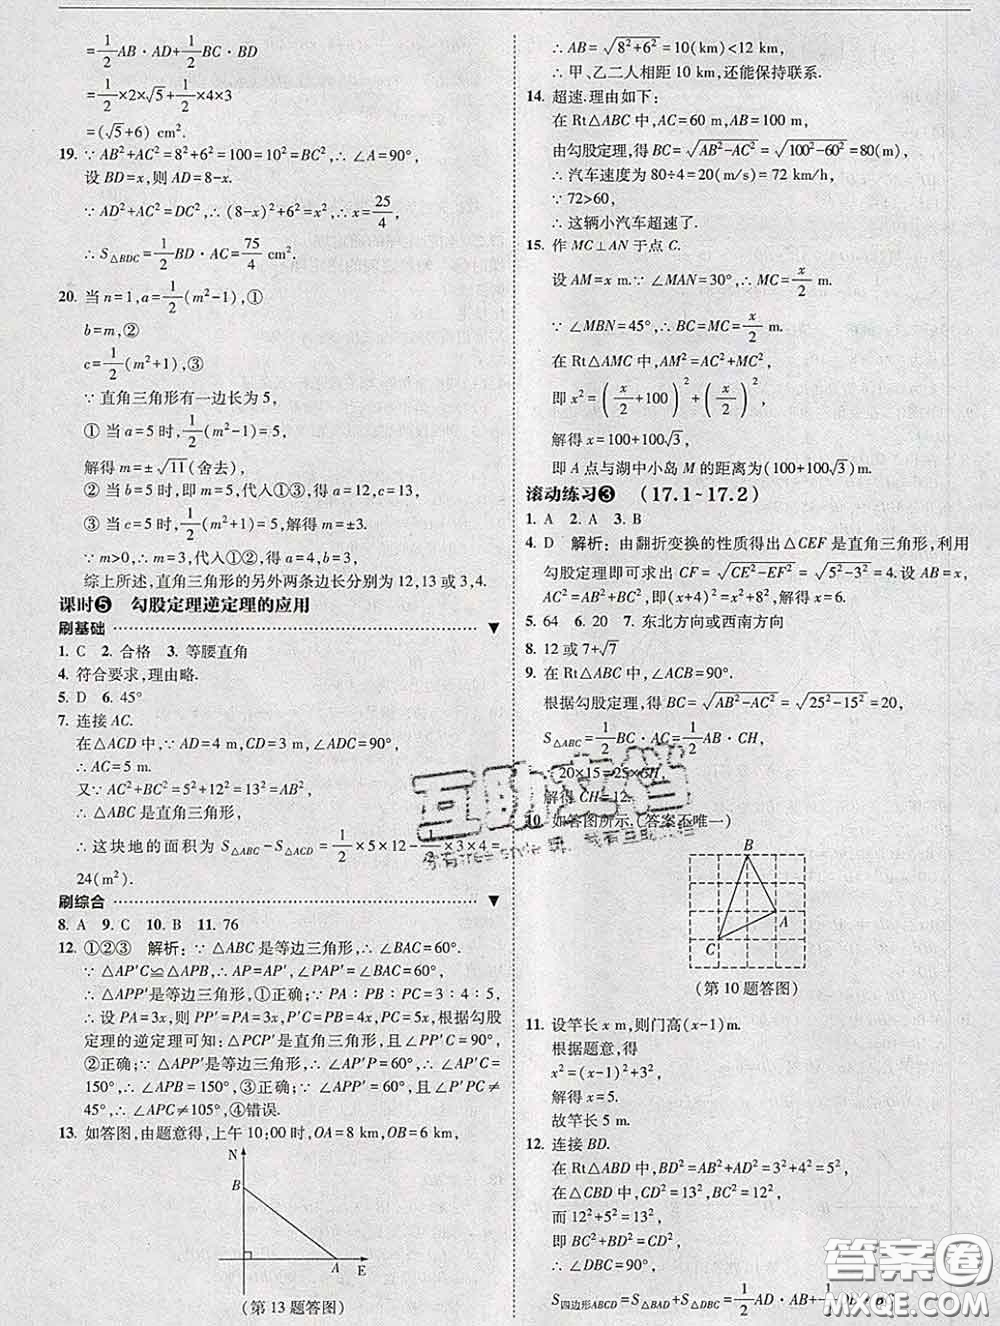 =1/2AB·AD+1/2BC·BD
=1/2×2×√5+1/2×4×3
=(√5+6) cm².
19. ∵AB²+AC²=8²+6²=100=10²=BC²,∴∠A=90°,
设BD=x,则AD=8-x.
∵AD²+AC²=DC²,∴(8-x)²+6²=x²,∴x=25/4,
∴S△BDC=1/2BD·AC=75/4 cm².
20. 当n=1,a=1/2(m²-1),①
b=m,②
c=1/2(m²+1),③
∵直角三角形有一边长为5,
①当a=5时,1/2(m²-1)=5,
解得m=±√11(舍去);
②当b=5时,即m=5,代入①③,得a=12,c=13,
③当c=5时,1/2(m²+1)=5,解得m=±3.
∵m>0,∴m=3,代入①②,得a=4,b=3,
综上所述,直角三角形的另外两条边长分别为12,13或3,4.
课时❺ 勾股定理逆定理的应用
刷基础
1. C 2. 合格 3. 等腰直角
4. 符合要求,理由略.
5. D 6. 45°
7. 连接AC.
在△ACD中,∵AD=4 m,CD=3 m,∠ADC=90°,
∴AC=5 m.
又∵AC²+BC²=5²+12²=13²=AB²,
∴△ABC是直角三角形,
∴这块地的面积为S△ABC-S△ACD=1/2×5×12-1/2×3×4=
24(m²).
刷综合
8. A 9. C 10. B 11. 76
12. ①②③ 解析:∵△ABC是等边三角形,∴∠BAC=60°.
∵△AP′C≌△APB,∴AP=AP′,∠PAP′=∠BAC=60°,
∴△APP′是等边三角形,①正确;∵PA∶PB∶PC=3∶4∶5,
∴设PA=3x,则PP′=PA=3x,P′C=PB=4x,PC=5x,根据勾股
定理的逆定理可知:△PCP′是直角三角形,且∠PP′C=90°,
②正确;∵△APP′是等边三角形,∴∠AP′P=60°,∴∠AP′C=
150°,∴∠APB=150°,③正确;∵∠APP′=60°,且∠P′PC≠
45°,∴∠APC≠105°,④错误.
13. 如答图,由题意得,上午10:00时,OA=8 km,OB=6 km,
N
B
A E
(第13题答图)
∴AB=√(8²+6²)=10(km)<12 km,
∴甲、乙二人相距10 km,还能保持联系.
14. 超速.理由如下:
在Rt△ABC中,AC=60 m,AB=100 m,
由勾股定理,得BC=√(AB²-AC²)=√(100²-60²)=80(m),
∴汽车速度为80÷4=20(m/s)=72 km/h,
∵72>60,
∴这辆小汽车超速了.
15. 作MC⊥AN于点C.
设AM=x m,∵∠MAN=30°,∴MC=x/2 m.
∵∠MBN=45°,∴BC=MC=x/2 m.
在Rt△AMC中,AM²=AC²+MC²,
即x²=(x/2+100)²+(x/2)²,
解得x=100+100√3,
即A点与湖中小岛M的距离为(100+100√3)m.
滚动练习❸ (17.1~17.2)
1. A 2. A 3. B
4. D 解析:由翻折变换的性质得出△CEF是直角三角形,利用
勾股定理即可求出CF=√(CE²-EF²)=√(5²-3²)=4.设AB=x,
AC²=AB²+BC²,即(x+4)²=x²+8²,解得x=6.
5. 64 6. 20 7. 东北方向或西南方向
8. 12或7+√7
9. 在Rt△ABC中,∠ACB=90°.
根据勾股定理,得BC=√(AB²-AC²)=√(25²-15²)=20,
S△ABC=1/2BC·AC=1/2AB·CH,
∴20×15=25×CH,
解得CH=12.
10. 如答图所示.(答案不唯一)
B
A
C
(第10题答图)
11. 设竿长x m,则门高(x-1)m.
根据题意,得
x²=(x-1)²+3²,
解得x=5.
故竿长5 m.
12. 连接BD.
在Rt△ABD中,BD²=AB²+AD²=3²+4²=5²,
在△CBD中,CD²=13²,BC²=12²,
而12²+5²=13²,
即BC²+BD²=CD²,
∴∠DBC=90°,
S四边形ABCD=S△BAD+S△DBC=1/2AD·AB+1/2
互助文档
答案卷